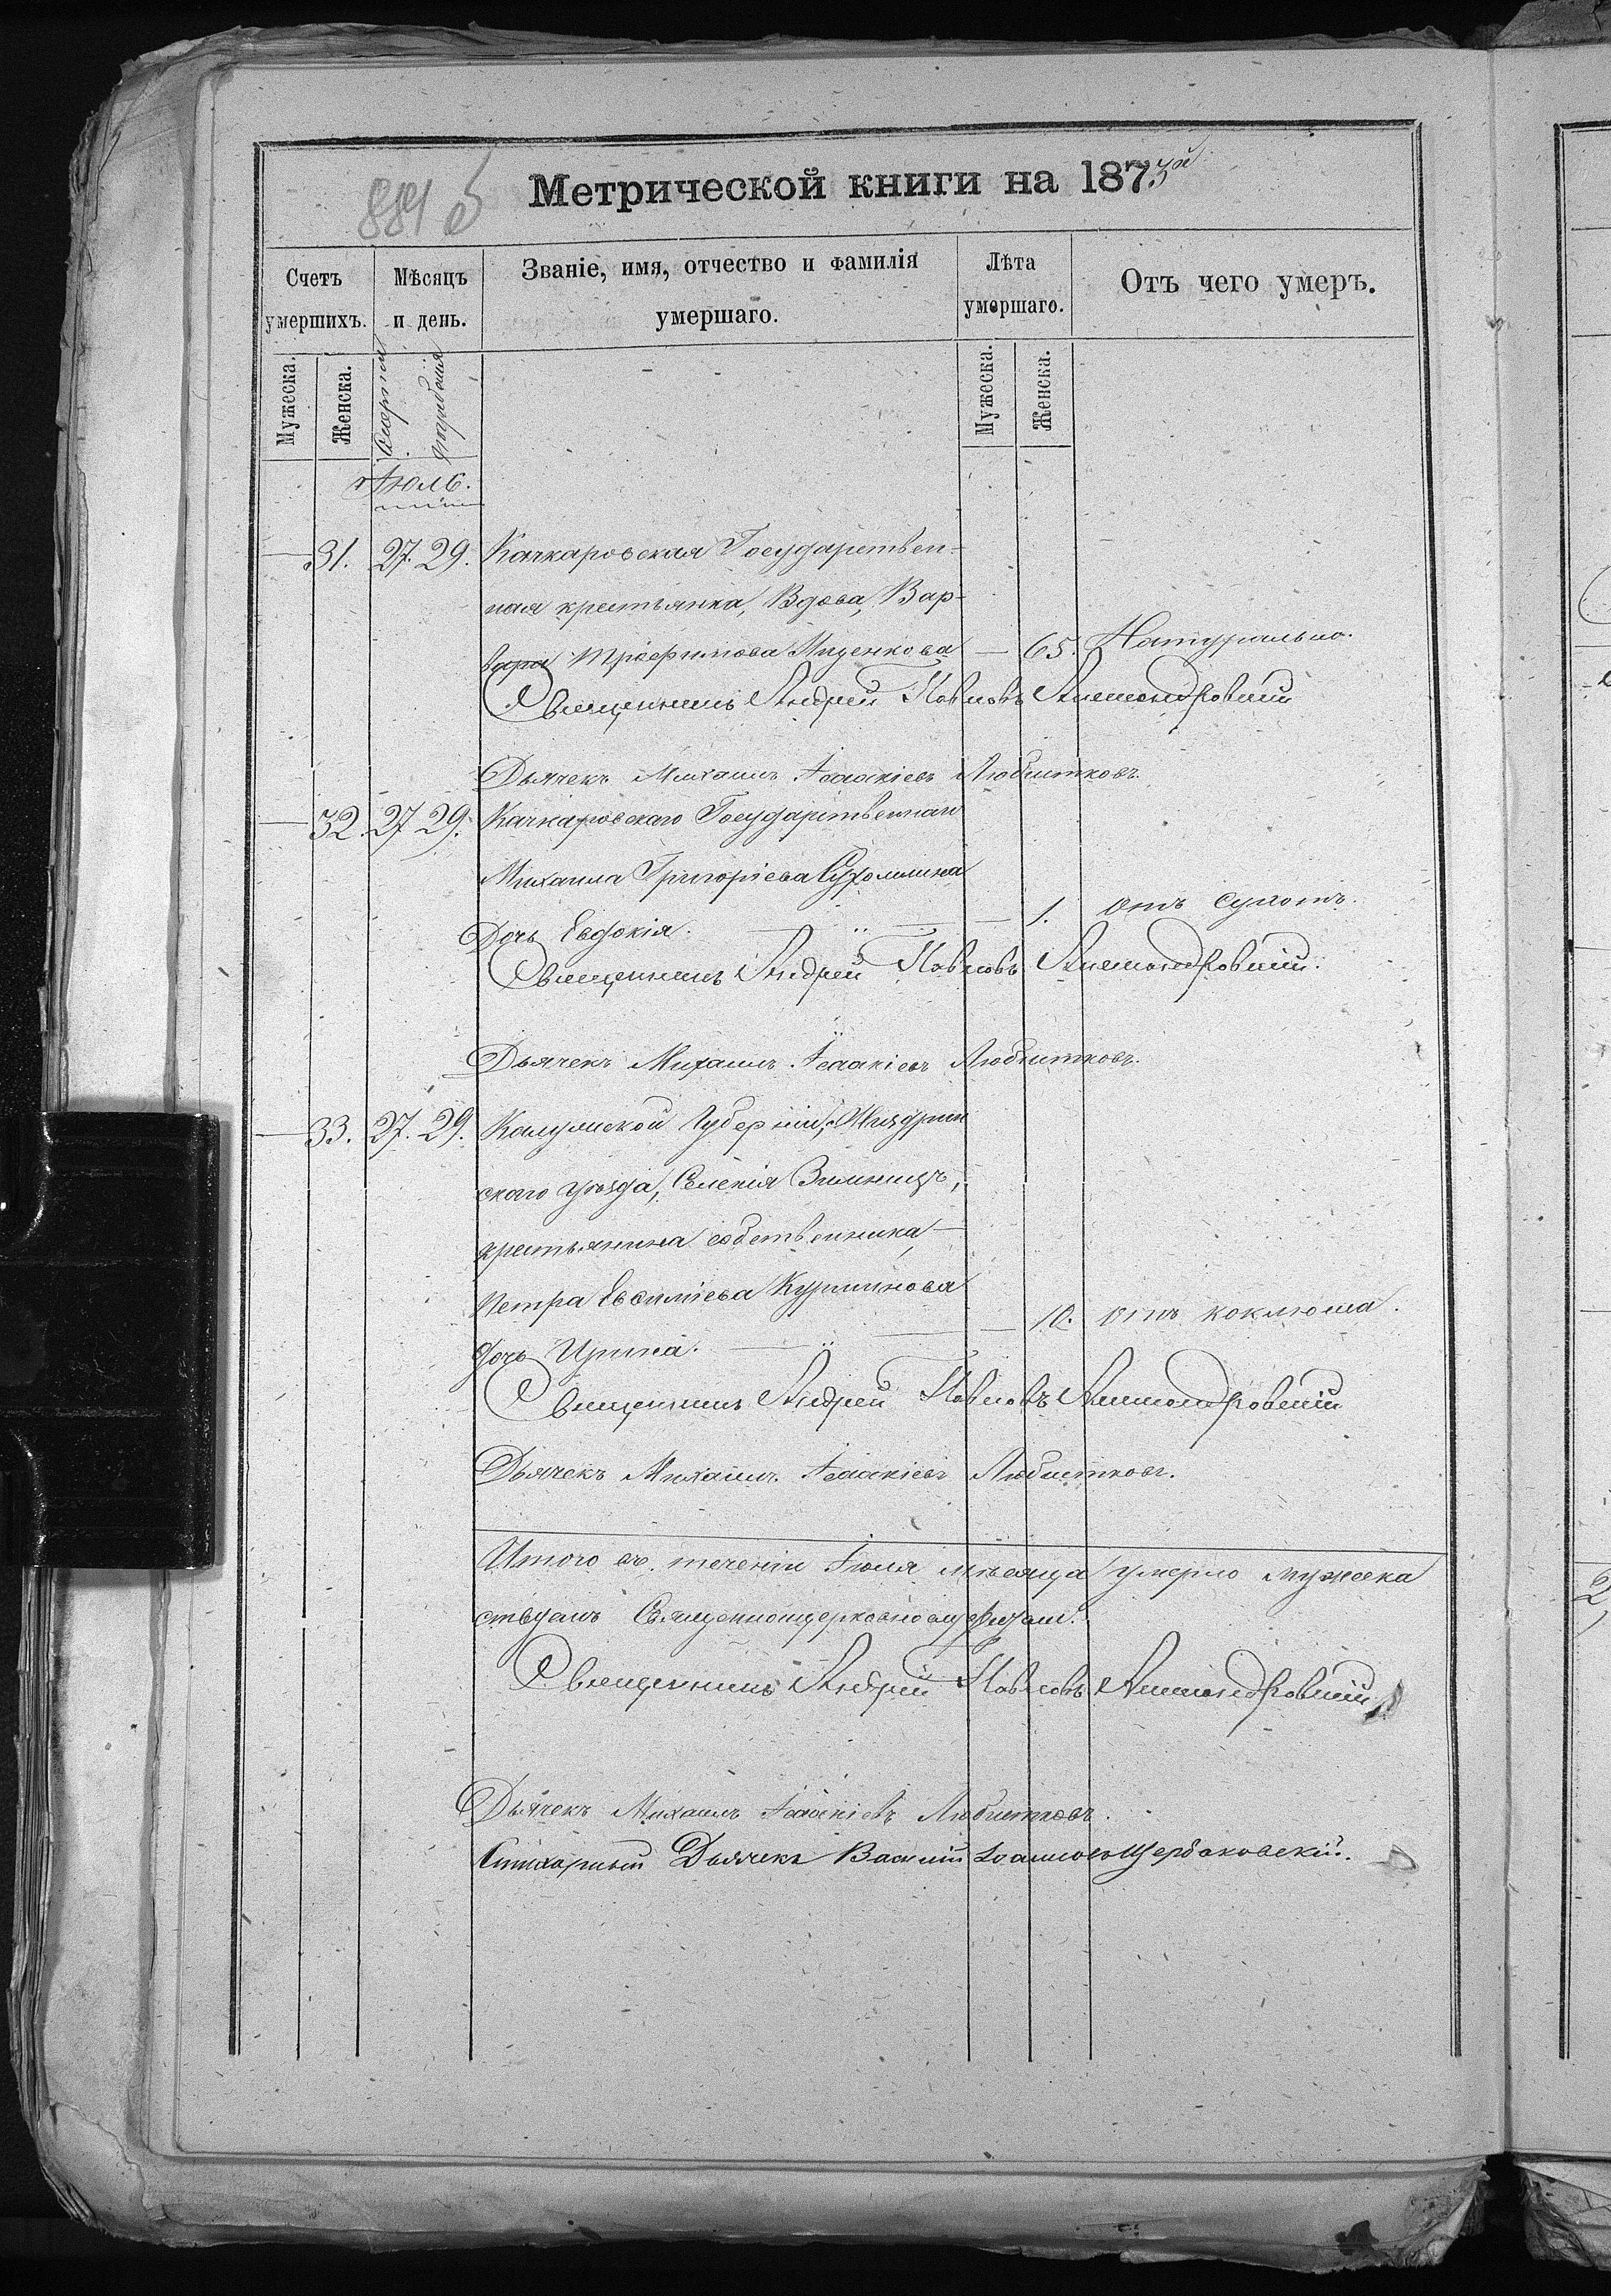 884 б
Метрической книги на 1873й
Счетъ умершихъ.
Мѣсяцъ и день.
Званіе, имя, отчество и фамилія умершаго.
Лѣта умершаго.
Отъ чего умеръ.
Мужеска.
Женска.
смерти
погребенія
Мужеска.
Женска.
Іюль.
31. 27. 29. Качкаровская Государствен-
ная крестьянка, Вдова, Вар-
вара Трофимова Ищенкова — 65. Натурально.
Священникъ Андрей Павловъ
Дьячекъ Михаилъ Ісаакіевъ Любитковъ.
32. 27 29. Качкаровскаго Государственнаго
Михаила Григоріева Сухомлина
Дочь Евдокія. — 1. отъ сухотъ.
Священникъ Андрей Павловъ
Дьячекъ Михаилъ Ісаакіевъ Любитковъ.
33. 27. 29. Калужской Губерніи, Жиздрин
скаго уѣзда, Селенія Зимницъ,
крестьянина собственника
Петра Евфиміева
дочь Ирина. — 10. отъ коклюша.
Священникъ Андрей Павловъ
Дьячекъ Михаилъ Ісаакіевъ Любитковъ.
Итого въ теченіи Іюля мѣсяца умерло мужеска
Священникъ Андрей Павловъ
Дьячекъ Михаилъ Ісаакіевъ Любитковъ.
Стихарный Дьячекъ Василій Іоанновъ Щербаковскій.